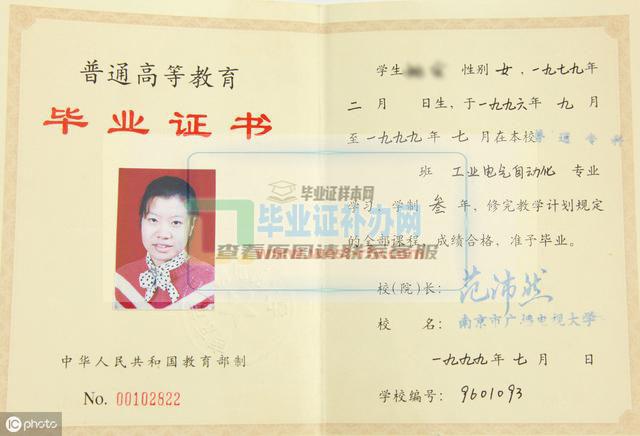 普通高等教育
毕业证书
中华人民共和国教育部制
No. 00102822
学生 性别 女，一九七九年
二月 日生，于一九九六年九月
至一九九九年七月在本校普通专科
班 工业电气自动化 专业
学习，学制 叁 年，修完教学计划规定
的全部课程，成绩合格，准予毕业。
校（院）长：范沛然
校 名：南京市广播电视大学
一九九九年七月 日
学校编号：9601093
毕业证样本网
毕业证补办网
查看原图请联系客服
IC photo